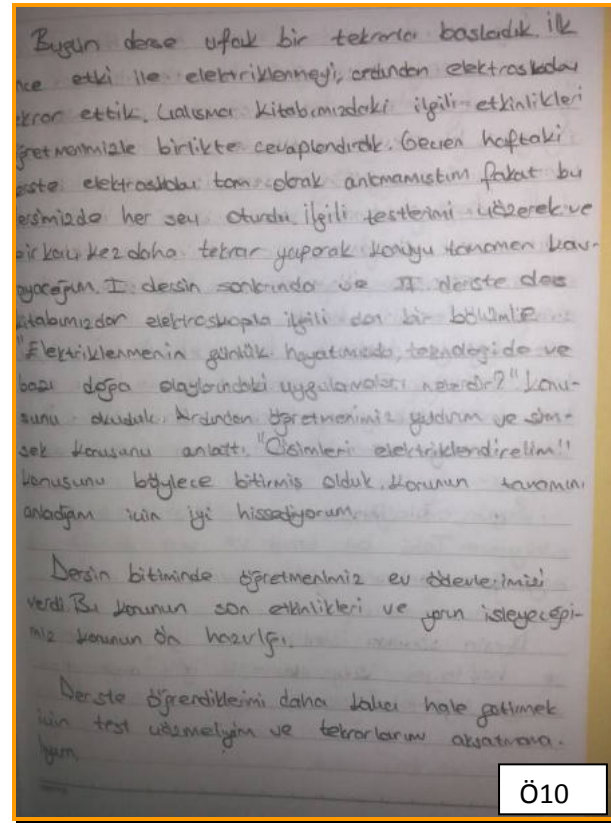 Bugün derse ufak bir tekrarla başladık. İlk
nce etki ile elektriklenmeyi, ardından elektroskobu
ekrar ettik. Çalışma kitabımızdaki ilgili etkinlikleri
ğretmenimizle birlikte cevaplandırdık. Geçen haftaki
erste elektroskobu tam olarak anlamamıştım fakat bu
ersimizde her şey oturdu. İlgili testlerimi çözerek ve
bir kaç kez daha tekrar yaparak konuyu tamamen kav-
ayacağım. I. dersin sonlarında ve II. derste ders
kitabımızdan elektroskopla ilgili olan bir bölümle
"Elektriklenmenin günlük hayatımızda, teknolojide ve
bazı doğa olaylarındaki uygulamaları nelerdir?" konu-
sunu okuduk. Ardından öğretmenimiz yıldırım ve şim-
şek konusunu anlattı. "Cisimleri elektriklendirelim"
konusunu böylece bitirmiş olduk. Konunun tamamını
anladığım için iyi hissediyorum.
Dersin bitiminde öğretmenimiz ev ödevlerimizi
verdi. Bu konunun son etkinlikleri ve yarın işleyeceği-
miz konunun ön hazırlığı.
Derste öğrendiklerimi daha kalıcı hale getirmek
için test çözmeliyim ve tekrarlarımı aksatmama-
lıyım.
Ö10